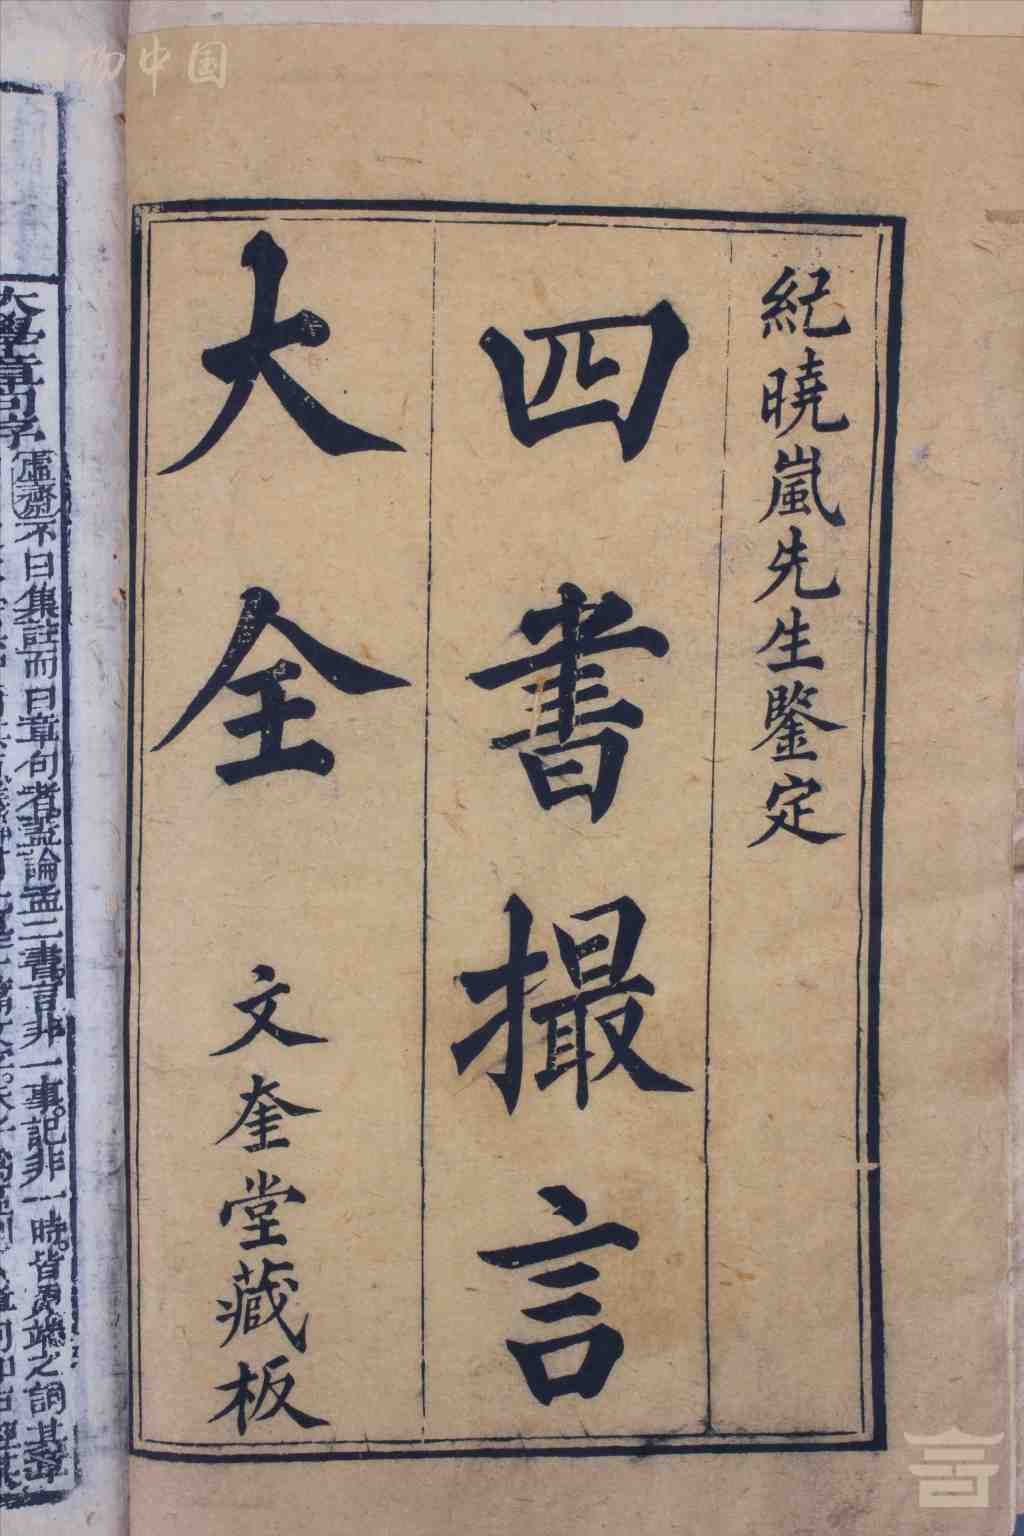 紀曉嵐先生鑒定
四書撮言
大全
文奎堂藏板
大學章句序 虛齋不曰集註而曰章句者蓋論孟二書言非一事記非一時皆更端之詞
中国